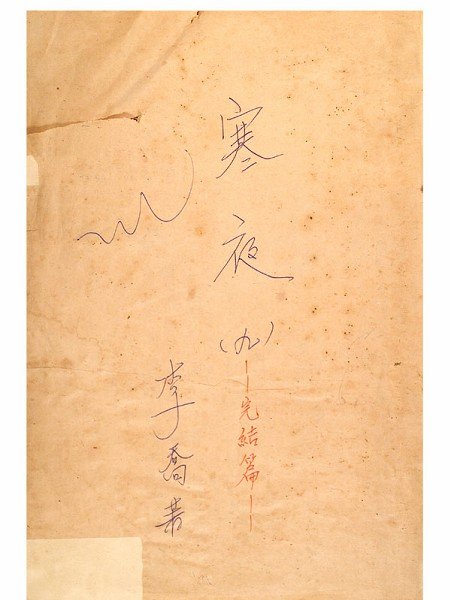 寒夜(九)
—完結篇—
李喬著